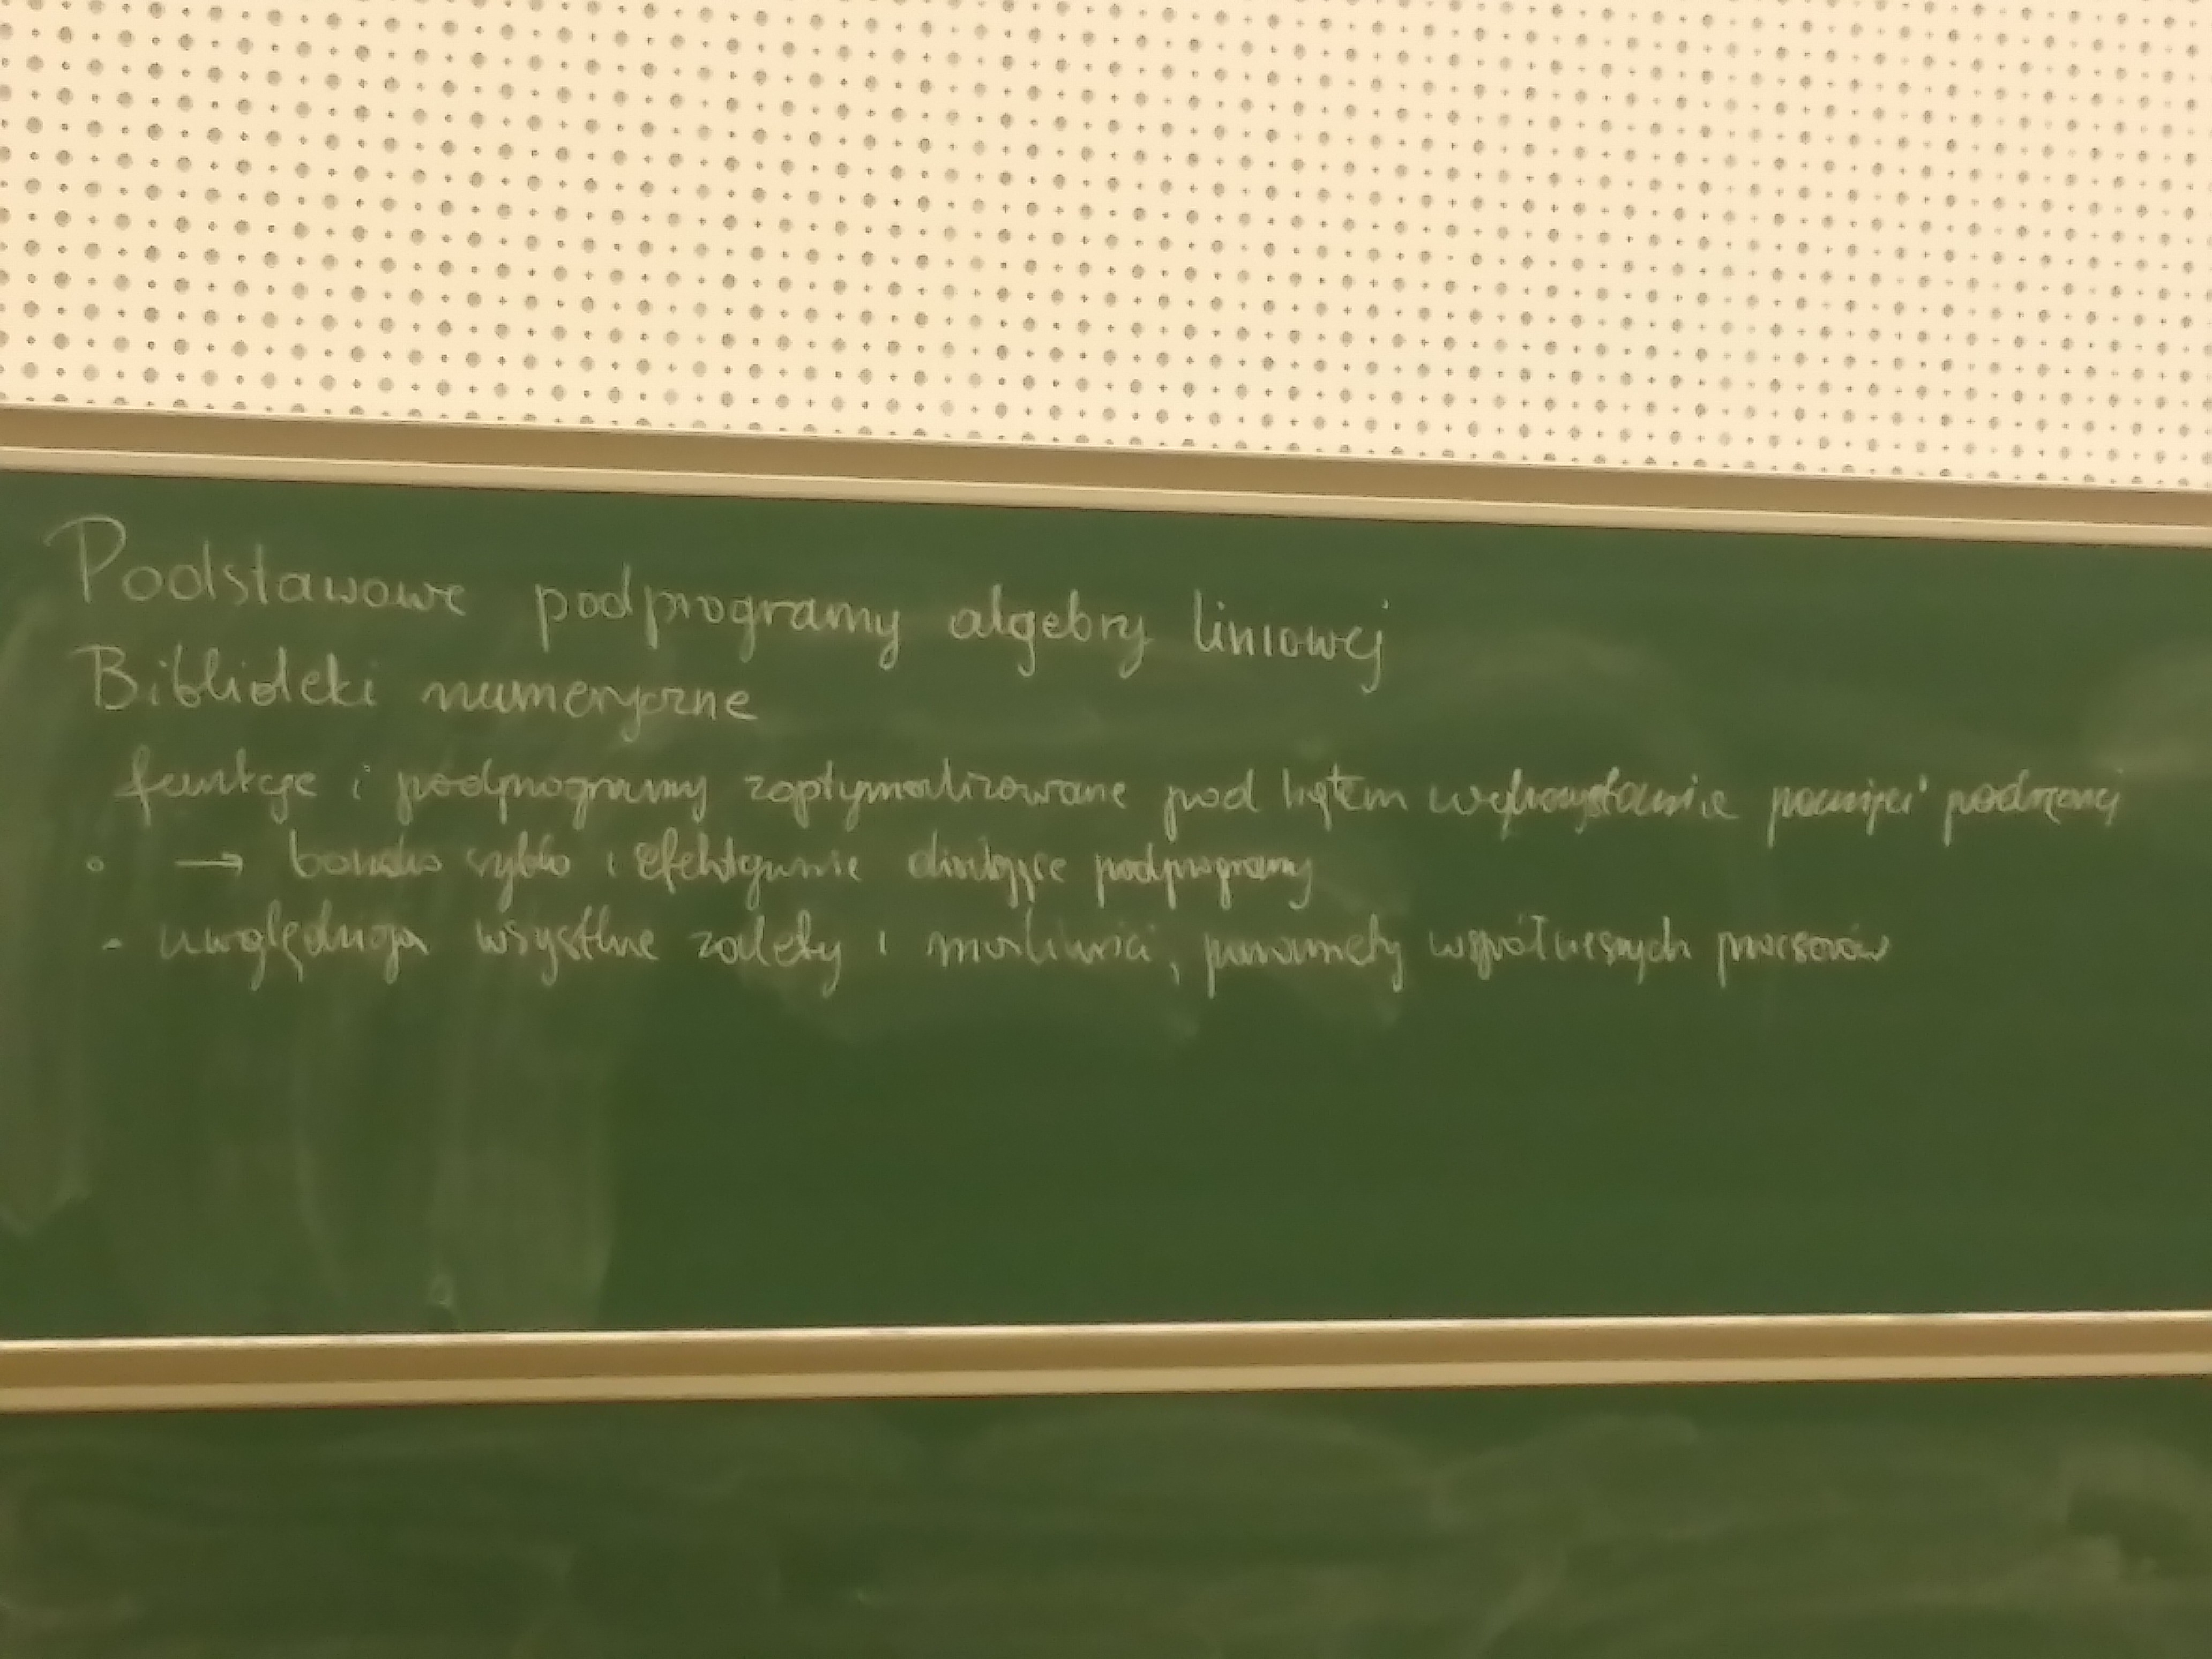 Podstawowe podprogramy algebry liniowej
Biblioteki numeryczne
funkcje i podprogramy zoptymalizowane pod kątem wykorzystania pamięci podręcznej
→ bardzo szybko i efektywnie działające podprogramy
- uwzględniają wszystkie zalety i możliwości, parametry współczesnych procesorów